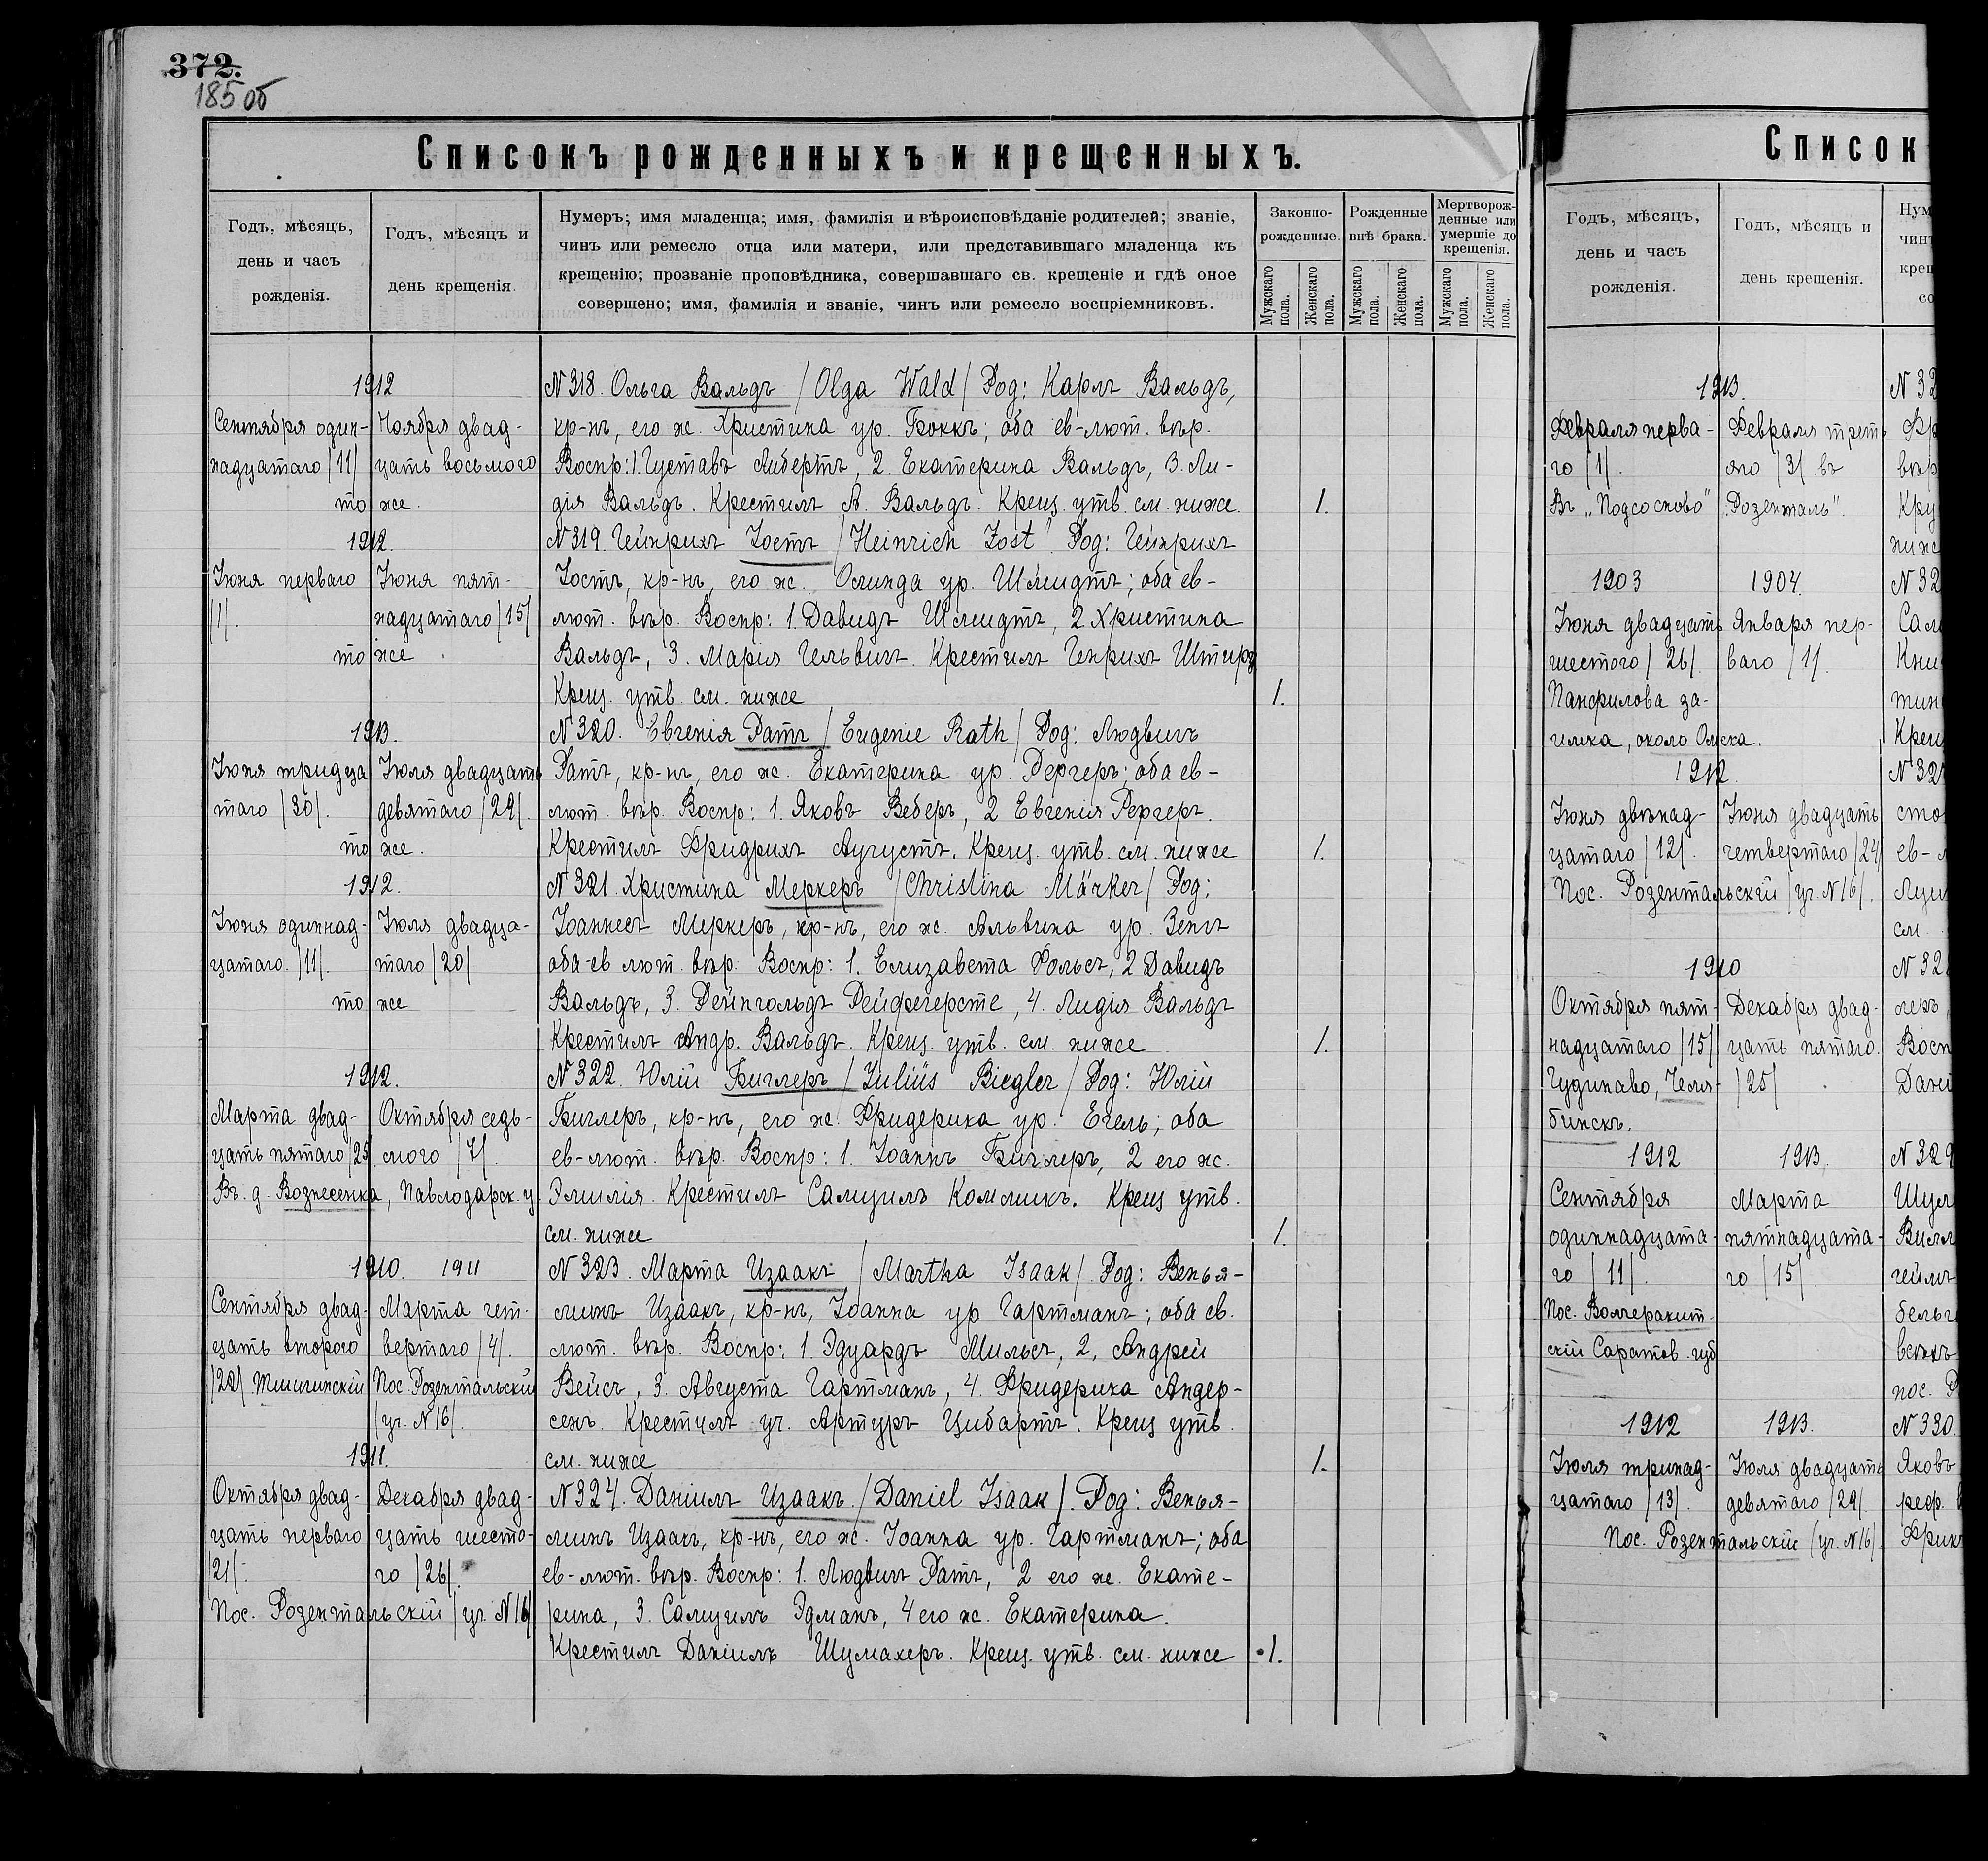 372.
185 об
Списокъ рожденныхъ и крещенныхъ.
Годъ, мѣсяцъ,
день и часъ
рожденія.
Годъ, мѣсяцъ и
день крещенія.
Нумеръ; имя младенца; имя, фамилія и вѣроисповѣданіе родителей; званіе,
чинъ или ремесло отца или матери, или представившаго младенца къ
крещенію; прозваніе проповѣдника, совершавшаго св. крещеніе и гдѣ оное
совершено; имя, фамилія и званіе, чинъ или ремесло воспріемниковъ.
Законно-
рожденные.
Рожденные
внѣ брака.
Мертворож-
денные или
умершіе до
крещенія.
Мужскаго пола.
Женскаго пола.
Мужскаго пола.
Женскаго пола.
Мужскаго пола.
Женскаго пола.
1912
Сентября один-
надцатаго /11/
Ноября двад-
цать восьмого
то же.
N 318. Ольга Вальдъ /Olga Wald/ Род: Карлъ Вальдъ,
кр-нъ, его ж. Христина ур. Боккъ; оба ев-лют. вѣр.
Воспр: 1. Густавъ Либертъ, 2. Екатерина Вальдъ, 3. Ли-
дія Вальдъ. Крестилъ А. Вальдъ. Крещ. утв. см. ниже. 1.
1912.
Іюня перваго
/1/.
Іюня пят-
надцатаго /15/
то же
N 319. Гейнрихъ Іостъ /Heinrich Jost/ Род: Гейнрихъ
Іостъ, кр-нъ, его ж. Ослинда ур. Шмидтъ; оба ев-
лют. вѣр. Воспр: 1. Давидъ Шмидтъ, 2 Христина
Вальдъ, 3. Марія Гельвихъ. Крестилъ Генрихъ Штирц
Крещ. утв. см. ниже 1.
1913.
Іюня тридца
таго /30/.
Іюля двадцать
девятаго /29/.
то же.
N 320. Евгенія Ратъ /Eugenie Rath/ Род: Людвигъ
Ратъ, кр-нъ, его ж. Екатерина ур. Рергеръ; оба ев-
лют. вѣр. Воспр: 1. Яковъ Веберъ, 2 Евгенія Рергеръ.
Крестилъ Фридрихъ Августъ. Крещ. утв. см. ниже 1.
1912.
Іюня одиннад-
цатаго. /11/.
Іюля двадца-
таго /20/
то же
N 321. Христина Меркеръ /Christina Märker/ Род:
Іоаннесъ Меркеръ, кр-нъ, его ж. Альвина ур. Зенгъ
оба-ев лют. вѣр. Воспр: 1. Елизавета Фольсъ, 2 Давидъ
Вальдъ, 3. Рейнгольдъ Рейфегерсте, 4. Лидія Вальдъ
Крестилъ Андр. Вальдъ. Крещ. утв. см. ниже 1.
1912.
Марта двад-
цать пятаго /25/.
Октября седь-
мого /7/.
Въ. д. Вознесенка, Павлодарск. у.
N 322. Юлій Биглеръ /Juliŭs Biegler/ Род: Юлій
Биглеръ, кр-нъ, его ж. Фридерика ур. Егель; оба
ев-лют. вѣр. Воспр: 1. Іоаннъ Биглеръ, 2 его ж.
Эмилія. Крестилъ Самуилъ Комликъ. Крещ утв.
см. ниже 1.
1910. 1911
Сентября двад-
цать второго
/22/ Мшигинскій
Марта чет-
вертаго /4/.
Пос. Розентальскій
/уч. N 16/.
N 323. Марта Изаакъ /Martha Isaak/. Род: Венья-
минъ Изаакъ, кр-нъ, Іоанна ур Гартманъ; оба ев.
лют. вѣр. Воспр: 1. Эдуардъ Мильсъ, 2, Андрей
Вейсъ, 3. Августа Гартманъ, 4. Фридерика Андер-
сенъ. Крестилъ уч. Артуръ Цибартъ. Крещ утв.
см. ниже 1.
1911.
Октября двад-
цать перваго
/21/.
Декабря двад-
цать шесто-
го /26/.
Пос. Розентальскій /уч. N 16/
N 324. Даніилъ Изаакъ. /Daniel Isaak/. Род: Венья-
минъ Изаакъ, кр-нъ, его ж. Іоанна ур. Гартманъ; оба
ев-лют. вѣр. Воспр: 1. Людвигъ Ратъ, 2 его ж. Екате-
рина, 3. Самуилъ Эдманъ, 4 его ж. Екатерина.
Крестилъ Даніилъ Шумахеръ. Крещ. утв. см. ниже 1.
Список
Годъ, мѣсяцъ,
день и часъ
рожденія.
Годъ, мѣсяцъ и
день крещенія.
Нум
чинъ
крещ
со
1913.
Февраля перва-
го /1/.
Въ „Подсосново"
Февраля треть
яго /3/ въ
„Розенталь".
N 32
Фр
вѣр
Кру
ниже
1903 1904.
Іюня двадцать
шестого /26/.
Панфилова за-
имка, около Омска.
Января пер-
ваго /1/.
N 32
Сам
Кни
тин
Крещ
1912.
Іюня двѣнад-
цатаго /12/.
Іюня двадцать
четвертаго /24/
Пос. Розентальскій /уч. N 16/.
N 32
сто
ев-л
Луи
см.
1910
Октября пят-
надцатаго /15/
Чудиново, Челя-
бинскъ.
Декабря двад-
цать пятаго.
/25/
N 328
леръ,
Восп
Дані
1912 1913.
Сентября
одиннадцата-
го /11/.
Пос. Волчеракит-
скій Саратов. губ
Марта
пятнадцата-
го /15/.
N 329
Шул
Вилл
гейлъ
бельг
вскъ
пос. Р
1912 1913.
Іюля тринад-
цатаго /13/.
Іюля двадцать
девятаго /29/.
Пос. Розентальскій (уч. N 16/.
N 330.
Яковъ
реф. в
Фрик